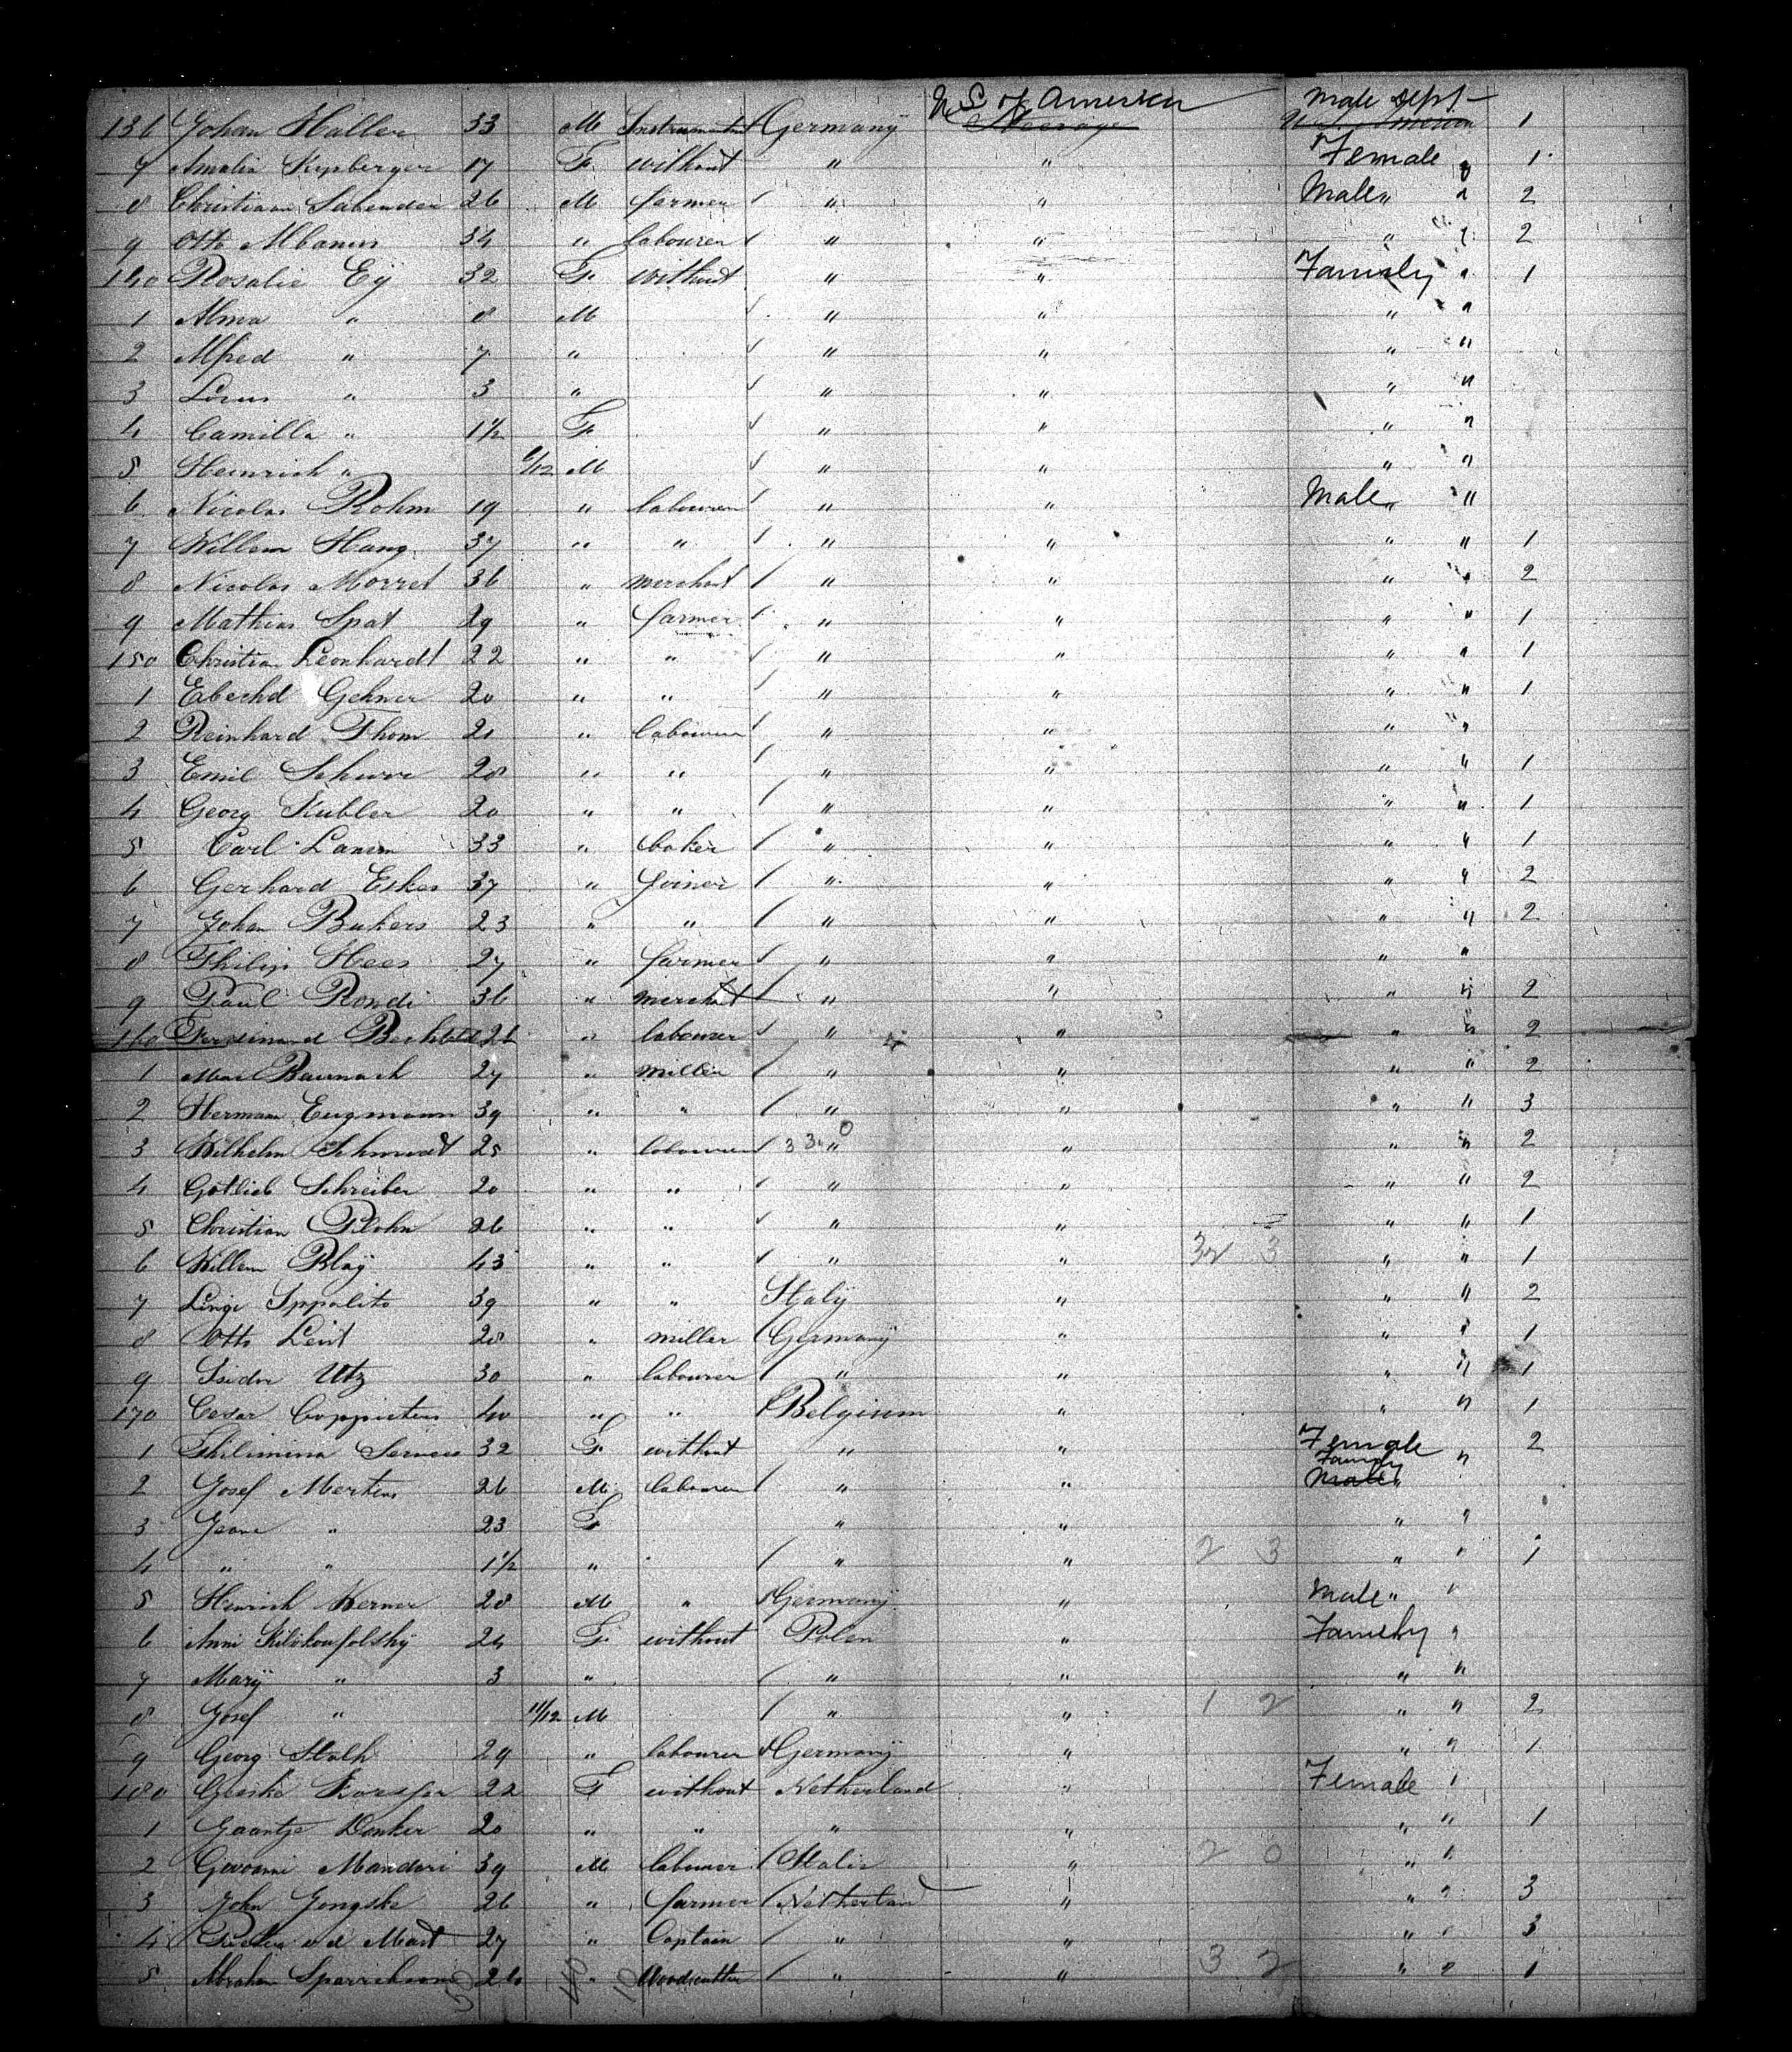 U S of America Male Dept
136 Johan Haller 33 M Germany Steerage 1
7 Amalia 17 F without " " Female " 1
8 Christiaan 26 M farmer " " Male " " 2
9 Otto Albanus 34 " labourer " " " " 2
140 Rosalie Eÿ 32 F without " " Family " 1
1 Alma " 8 M " " " "
2 Alfred " 7 " " " " "
3 " 3 " " " " "
4 Camilla " 1½ F " " " "
5 Heinrich " /12 M " " " "
6 Nicolas Rohm 19 " labourer " " Male " "
7 Willem Hang 37 " " " " " " 1
8 Nicolas Morret 36 " merchant " " " " 2
9 Mathias Spat 29 " farmer " " " " 1
150 Christian Leonhardt 22 " " " " " " 1
1 Eberhd Gehner 20 " " " " " " 1
2 Reinhard Thom 21 " labourer " " " "
3 Emil Schurr 28 " " " " " " 1
4 Georg Kubler 20 " " " " " " 1
5 Carl Lamm 33 " baker " " " " 1
6 Gerhard Eskes 37 " joiner " " " " 2
7 Johan Bukers 23 " " " " " " 2
8 Philip Hees 27 " farmer " " " "
9 Paul Rondi 36 " merchant " " " " 2
160 Ferdinand 26 " labourer " " " " 2
1 Baumash 27 " miller " " " " 2
2 Herman Eugmann 39 " " " " " " 3
3 Wilhelm Schmidt 25 " labourer 33 0 " " " " 2
4 Gotlieb Schreiber 20 " " " " " " 2
5 Christian Plohn 26 " " " " " " 1
6 Willem Blaÿ 43 " " " " 32 3 " " 1
7 Luigi Ippolito 39 " " Italÿ " " " 2
8 Otto Leut 28 " miller Germanÿ " " " 1
9 Isidor Utz 30 " labourer " " " " 1
170 Cesar Coppieters 40 " " Belgium " " " 1
1 Philimina 32 F without " " Female " 2
2 Josef Mertens 26 M labourer " " Family Male "
3 Jeane " 23 F " " " "
4 " " 1½ " " " 2 3 " " 1
5 Heinrich Kerner 28 M " Germanÿ " Male " "
6 Anni 24 F without Polen " Family "
7 Marÿ " 3 " " " " "
8 Josef " 11/12 M " " 1 2 " " 2
9 Georg Stolh 29 " labourer Germanÿ " " " 1
180 Geeske 22 F without Netherland " Female "
1 Gaantje Donker 20 " " " " " " 1
2 Giovanni Mandori 39 M labourer Italie " 2 0 " "
3 John Jongske 26 " farmer Netherland " " " 3
4 Pieter v d Mast 27 " Captain " " " " 3
5 Abraham 26 " Woodcutter " " 3 2 " " 1
50 40 10